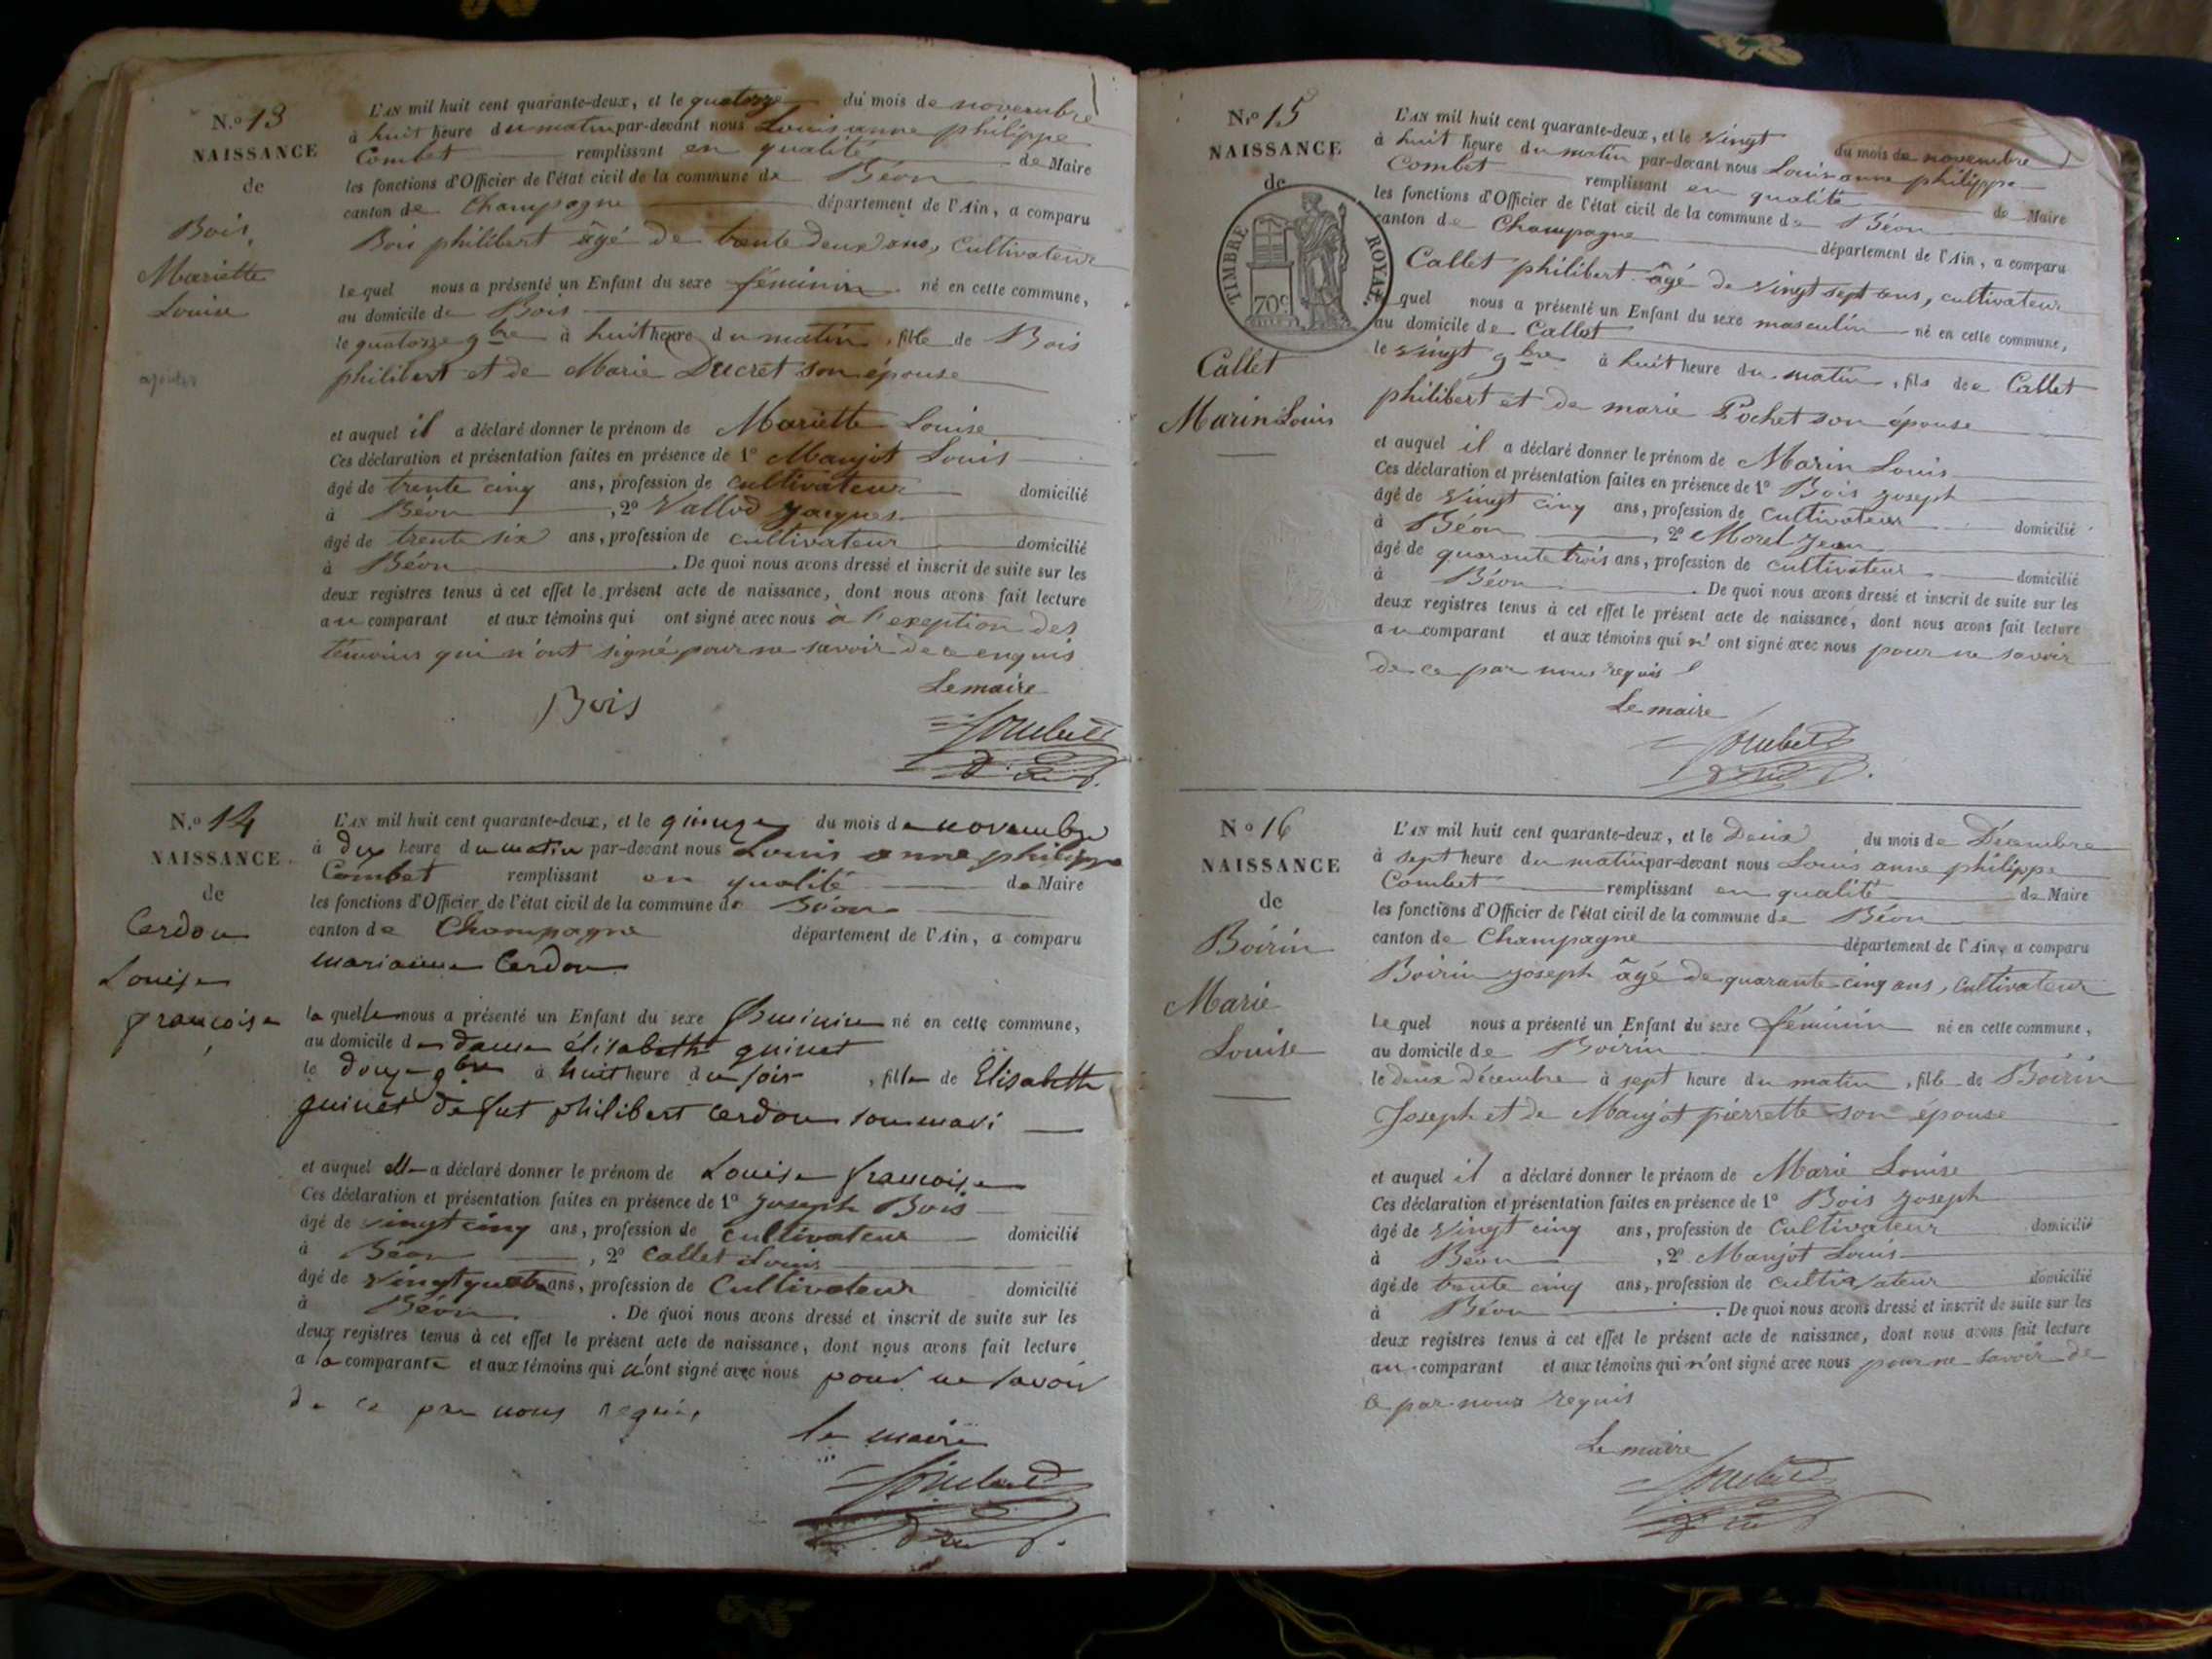 N.º 13
NAISSANCE
de
Bois
Mariette
Louise
L'AN mil huit cent quarante-deux, et le quatorze du mois de novembre
à huit heure du matin par-devant nous Louis anne philippe
Combet remplissant en qualité de Maire
les fonctions d'Officier de l'état civil de la commune de Béon
canton de Champagne département de l'Ain, a comparu
Bois philibert âgé de trente deux ans, cultivateur
lequel nous a présenté un Enfant du sexe féminin né en cette commune,
au domicile de Bois
le quatorze 9bre à huit heure du matin, fille de Bois
philibert et de Marie Ducret son épouse
et auquel il a déclaré donner le prénom de Mariette Louise
Ces déclaration et présentation faites en présence de 1º Maujot Louis
âgé de trente cinq ans, profession de cultivateur domicilié
à Béon, 2º Vallod Jacques
âgé de trente six ans, profession de cultivateur domicilié
à Béon. De quoi nous avons dressé et inscrit de suite sur les
deux registres tenus à cet effet le présent acte de naissance, dont nous avons fait lecture
au comparant et aux témoins qui ont signé avec nous à l'exeption des
témoins qui n'ont signé pour ne savoir de ce enquis
Bois
Le maire
Combet
N.º 14
NAISSANCE
de
Cerdon
Louise
françoise
L'AN mil huit cent quarante-deux, et le quinze du mois de novembre
à dix heure du matin par-devant nous Louis anne philippe
Combet remplissant en qualité de Maire
les fonctions d'Officier de l'état civil de la commune de Béon
canton de Champagne département de l'Ain, a comparu
marianne Cerdon
laquelle nous a présenté un Enfant du sexe féminin né en cette commune,
au domicile de dame élisabeth quinet
le douze 9bre à huit heure du soir, fille de Elisabeth
quinet de fut philibert Cerdon son mari
et auquel elle a déclaré donner le prénom de Louise françoise
Ces déclaration et présentation faites en présence de 1º Joseph Bois
âgé de vingt cinq ans, profession de cultivateur domicilié
à Béon, 2º Callet Louis
âgé de vingt quatre ans, profession de Cultivateur domicilié
à Béon. De quoi nous avons dressé et inscrit de suite sur les
deux registres tenus à cet effet le présent acte de naissance, dont nous avons fait lecture
a la comparante et aux témoins qui n'ont signé avec nous pour ne savoir
de ce par nous requis
le maire
Combet
N.º 15
NAISSANCE
de
TIMBRE ROYAL
70 c
Callet
Marin Louis
L'AN mil huit cent quarante-deux, et le vingt du mois de novembre
à huit heure du matin par-devant nous Louis anne philippe
Combet remplissant en qualité de Maire
les fonctions d'Officier de l'état civil de la commune de Béon
canton de Champagne département de l'Ain, a comparu
Callet philibert âgé de vingt sept ans, cultivateur
lequel nous a présenté un Enfant du sexe masculin né en cette commune,
au domicile de Callet
le vingt 9bre à huit heure du matin, fils de Callet
philibert et de marie Pochet son épouse
et auquel il a déclaré donner le prénom de Marin Louis
Ces déclaration et présentation faites en présence de 1º Bois Joseph
âgé de vingt cinq ans, profession de cultivateur domicilié
à Béon, 2º Morel Jean
âgé de quarante trois ans, profession de cultivateur domicilié
à Béon. De quoi nous avons dressé et inscrit de suite sur les
deux registres tenus à cet effet le présent acte de naissance, dont nous avons fait lecture
au comparant et aux témoins qui n'ont signé avec nous pour ne savoir
de ce par nous requis
Le maire
Combet
Nº 16
NAISSANCE
de
Boirin
Marie
Louise
L'AN mil huit cent quarante-deux, et le Deux du mois de Décembre
à sept heure du matin par-devant nous Louis anne philippe
Combet remplissant en qualité de Maire
les fonctions d'Officier de l'état civil de la commune de Béon
canton de Champagne département de l'Ain, a comparu
Boirin Joseph âgé de quarante cinq ans, cultivateur
lequel nous a présenté un Enfant du sexe féminin né en cette commune,
au domicile de Boirin
le deux décembre à sept heure du matin, fille de Boirin
Joseph et de Maujot pierrette son épouse
et auquel il a déclaré donner le prénom de Marie Louise
Ces déclaration et présentation faites en présence de 1º Bois Joseph
âgé de vingt cinq ans, profession de Cultivateur domicilié
à Béon, 2º Maujot Louis
âgé de trente cinq ans, profession de cultivateur domicilié
à Béon. De quoi nous avons dressé et inscrit de suite sur les
deux registres tenus à cet effet le présent acte de naissance, dont nous avons fait lecture
au comparant et aux témoins qui n'ont signé avec nous pour ne savoir de
ce par nous requis
Le maire
Combet